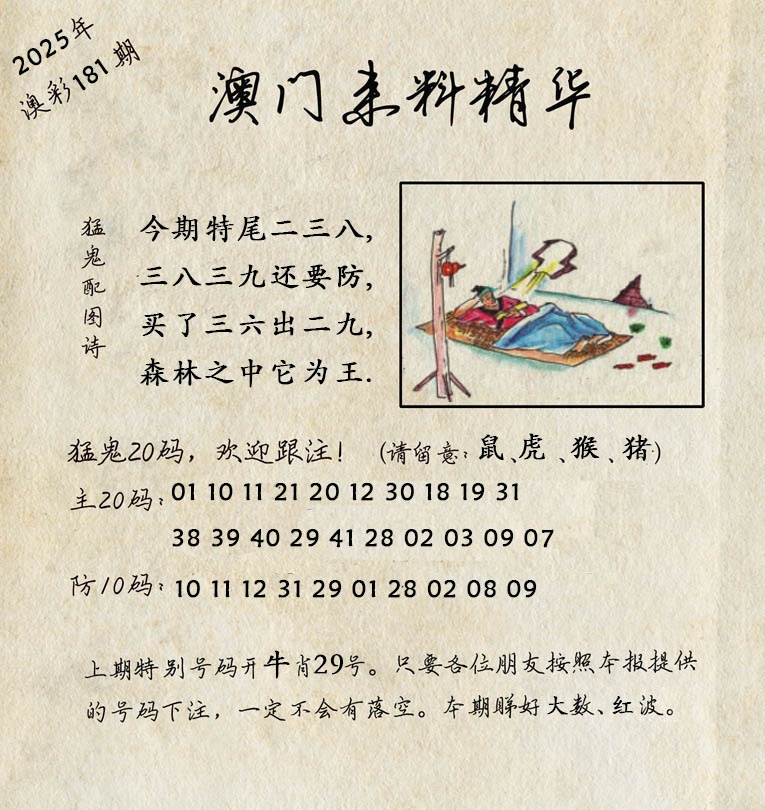 2025年
澳彩181期
澳门来料精华
猛鬼配图诗
今期特尾二三八,
三八三九还要防,
买了三六出二九,
森林之中它为王.
猛鬼20码，欢迎跟注! (请留意:鼠、虎、猴、猪)
主20码: 01 10 11 21 20 12 30 18 19 31
38 39 40 29 41 28 02 03 09 07
防10码: 10 11 12 31 29 01 28 02 08 09
上期特别号码开牛肖29号。只要各位朋友按照本报提供
的号码下注，一定不会有落空。本期睇好大数、红波。